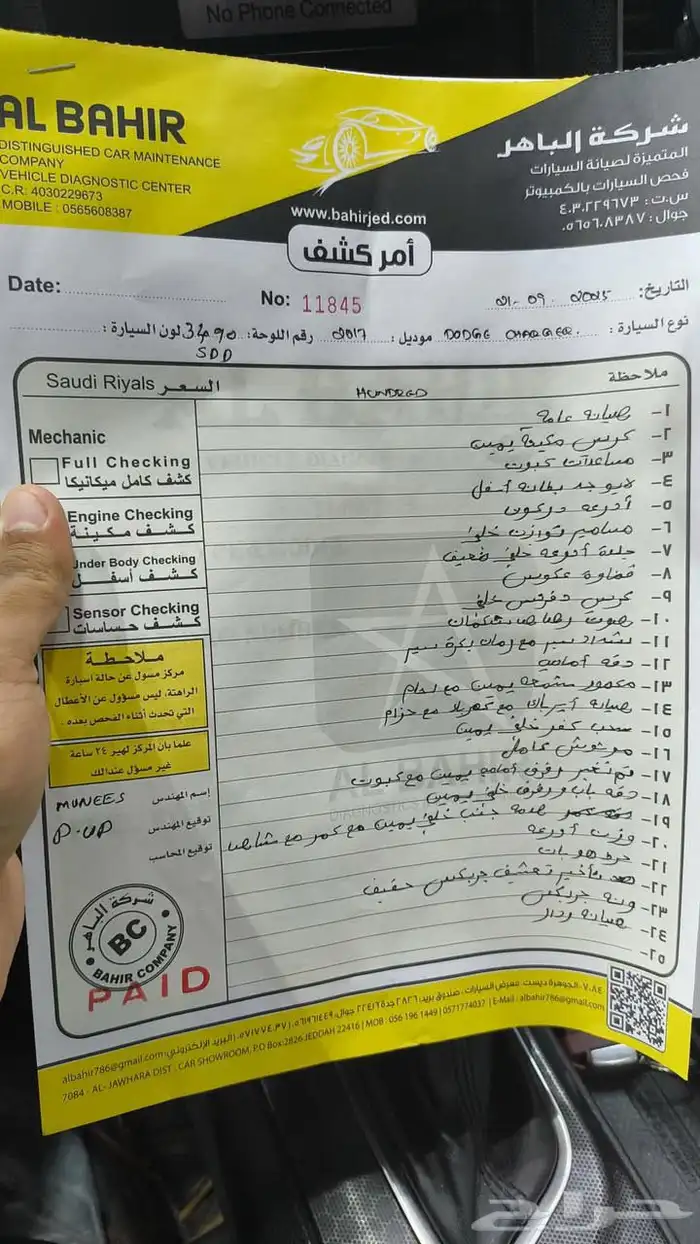 No Phone Connected
AL BAHIR
DISTINGUISHED CAR MAINTENANCE
COMPANY
VEHICLE DIAGNOSTIC CENTER
C.R: 4030229673
MOBILE : 0565608387
شركة الباهر
المتميزة لصيانة السيارات
فحص السيارات بالكمبيوتر
س.ت: ٤٠٣٠٢٢٩٦٧٣
جوال: ٠٥٦٥٦٠٨٣٨٧
www.bahirjed.com
أمر كشف
Date:
No: 11845
التاريخ: 21-09-2025
نوع السيارة: DODGE CHARGER موديل: 2017 رقم اللوحة: 3490 لون السيارة:
SDD
Saudi Riyals السعر
HUNDRED
ملاحظة
١- صيانة عامة
٢- كرسي مكينة يمين
٣- مساعدات كبوت
٤- لا يوجد بطانة أسفل
٥- أذرعة دركون
٦- مسامير توازن خلفي
٧- جلدة أذرعة خلفي ضعيف
٨- قضاوة عكوس
٩- كرسي دفرنس خلفي
١٠- صوت رصاص شكمان
١١- شداد سير مع رمان بكرة سير
١٢- دقة أمامية
١٣- مكسور شمعة يمين مع لحام
١٤- صيانة أيرباق مع كهرباء مع حزام
١٥- سحب كفر خلفي يمين
١٦- مرشوش كامل
١٧- تم تغيير رفرف أمامي يمين مع كبوت
١٨- دقة باب ورفرف خلفي يمين
١٩- صدمة جنب خلفي يمين مع كمر مع شاصي
٢٠- وزن أذرعة
٢١- خرط هوبات
٢٢- تأخير تعشيق جربكس خفيف
٢٣- ونة جربكس
٢٤- صيانة ردار
٢٥-
Mechanic
Full Checking
كشف كامل ميكانيكا
Engine Checking
كشف مكينة
Under Body Checking
كشف أسفل
Sensor Checking
كشف حساسات
ملاحظة
مركز مسول عن حالة اسيارة
الراهنة، ليس مسؤول عن الأعطال
التي تحدث أثناء الفحص بعده.
علما بان المركز لهير ٢٤ ساعة
غير مسؤل عندالك
إسم المهندس MUNEES
توقيع المهندس P-UP
توقيع المحاسب
شركة الباهر
BC
BAHIR COMPANY
PAID
AL BAHIR
٧٠٨٤- الجوهرة ديست. معرض السيارات، صندوق بريد: ٢٨٢٦ جدة ٢٢٤١٦ جوال: ٠٥٦١٩٦١٤٤٩ / ٠٥٧١٧٧٤٠٣٧ البريد الإلكتروني: albahir786@gmail.com
7084 - AL- JAWHARA DIST - CAR SHOWROOM, P.O Box:2826 JEDDAH 22416 | MOB : 056 196 1449 | 0571774037 | E-Mail : albahir786@gmail.com
حراج